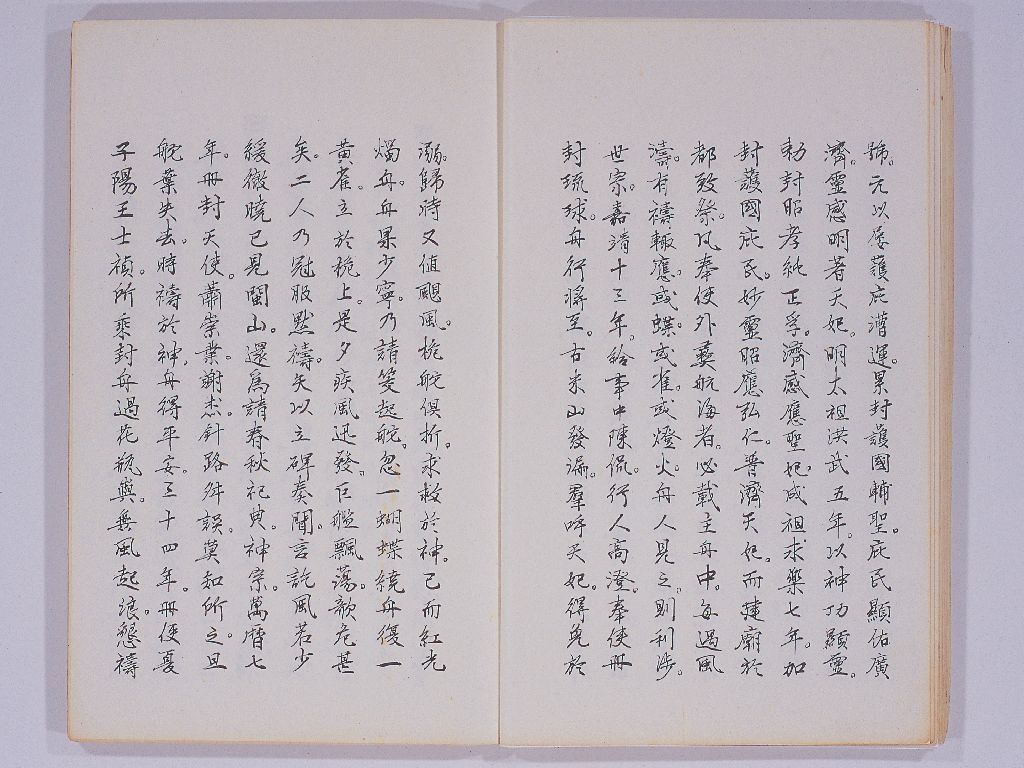 號。元以屡護庇漕運。累封護國輔聖。庇民顯佑廣
濟。靈感明著天妃。明太祖洪武五年。以神功顯靈。
勅封昭孝純正孚濟感應聖妃。成祖永樂七年。加
封護國庇民。妙靈昭應弘仁。普濟天妃。而建廟於
都致祭。凡奉使外彝航海者。必載主舟中。每過風
濤。有禱輙應。或蝶。或雀。或燈火。舟人見之。則利渉。
世宗。嘉靖十三年。給事中陳侃。行人高澄。奉使冊
封琉球。舟行將至。古米山發漏。羣呼天妃。得免於
溺。歸時又值颶風。桅舵俱折。求救於神。已而紅光
燭舟。舟果少寧。乃請筊起舵。忽一蝴蝶繞舟。復一
黄雀。立於桅上。是夕疾風迅發。巨艦飄蕩。欹危甚
矣。二人乃冠服默禱矢以立碑奏聞。言訖風若少
緩。微曉已見閩山。還為請春秋祀典。神宗。萬暦七
年。冊封天使。蕭崇業。謝杰。針路舛誤。莫知所之。且
舵葉失去。時禱於神。舟得平安。三十四年。冊使夏
子陽王士禎。所乘封舟過花瓶嶼。無風起浪。懇禱